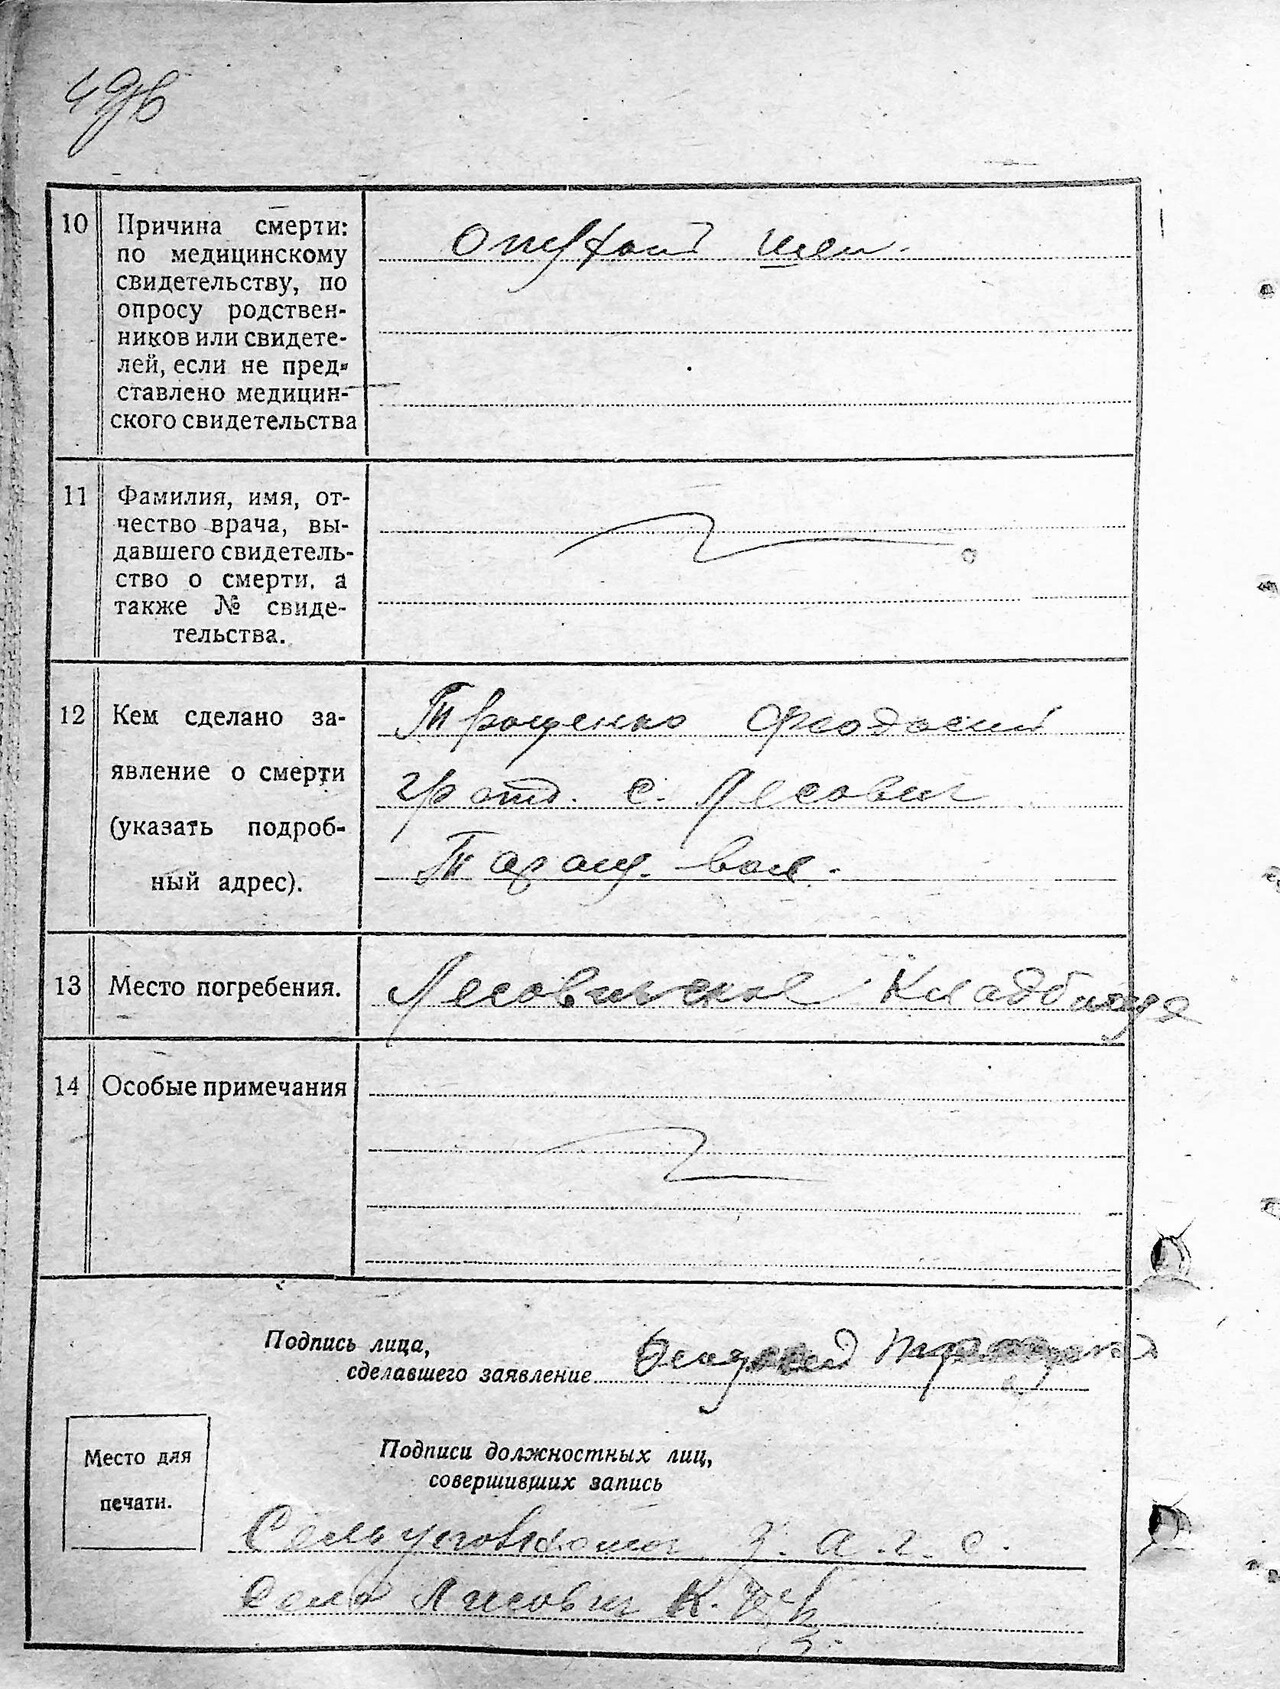 10 Причина смерти:
по медицинскому
свидетельству, по
опросу родствен-
ников или свидете-
лей, если не пред-
ставлено медицин-
ского свидетельства
опухоль шеи.
11 Фамилия, имя, от-
чество врача, вы-
давшего свидетель-
ство о смерти, а
также № свиде-
тельства.
12 Кем сделано за-
явление о смерти
(указать подроб-
ный адрес).
Трощенко Феодосий
с. Лесович
Таращ. вол.
13 Место погребения.
Лесовичское Кладбище
14 Особые примечания
Подпись лица,
сделавшего заявление
Подписи должностных лиц,
совершивших запись
Место для
печати.
З. а. г. с.
села Лисович